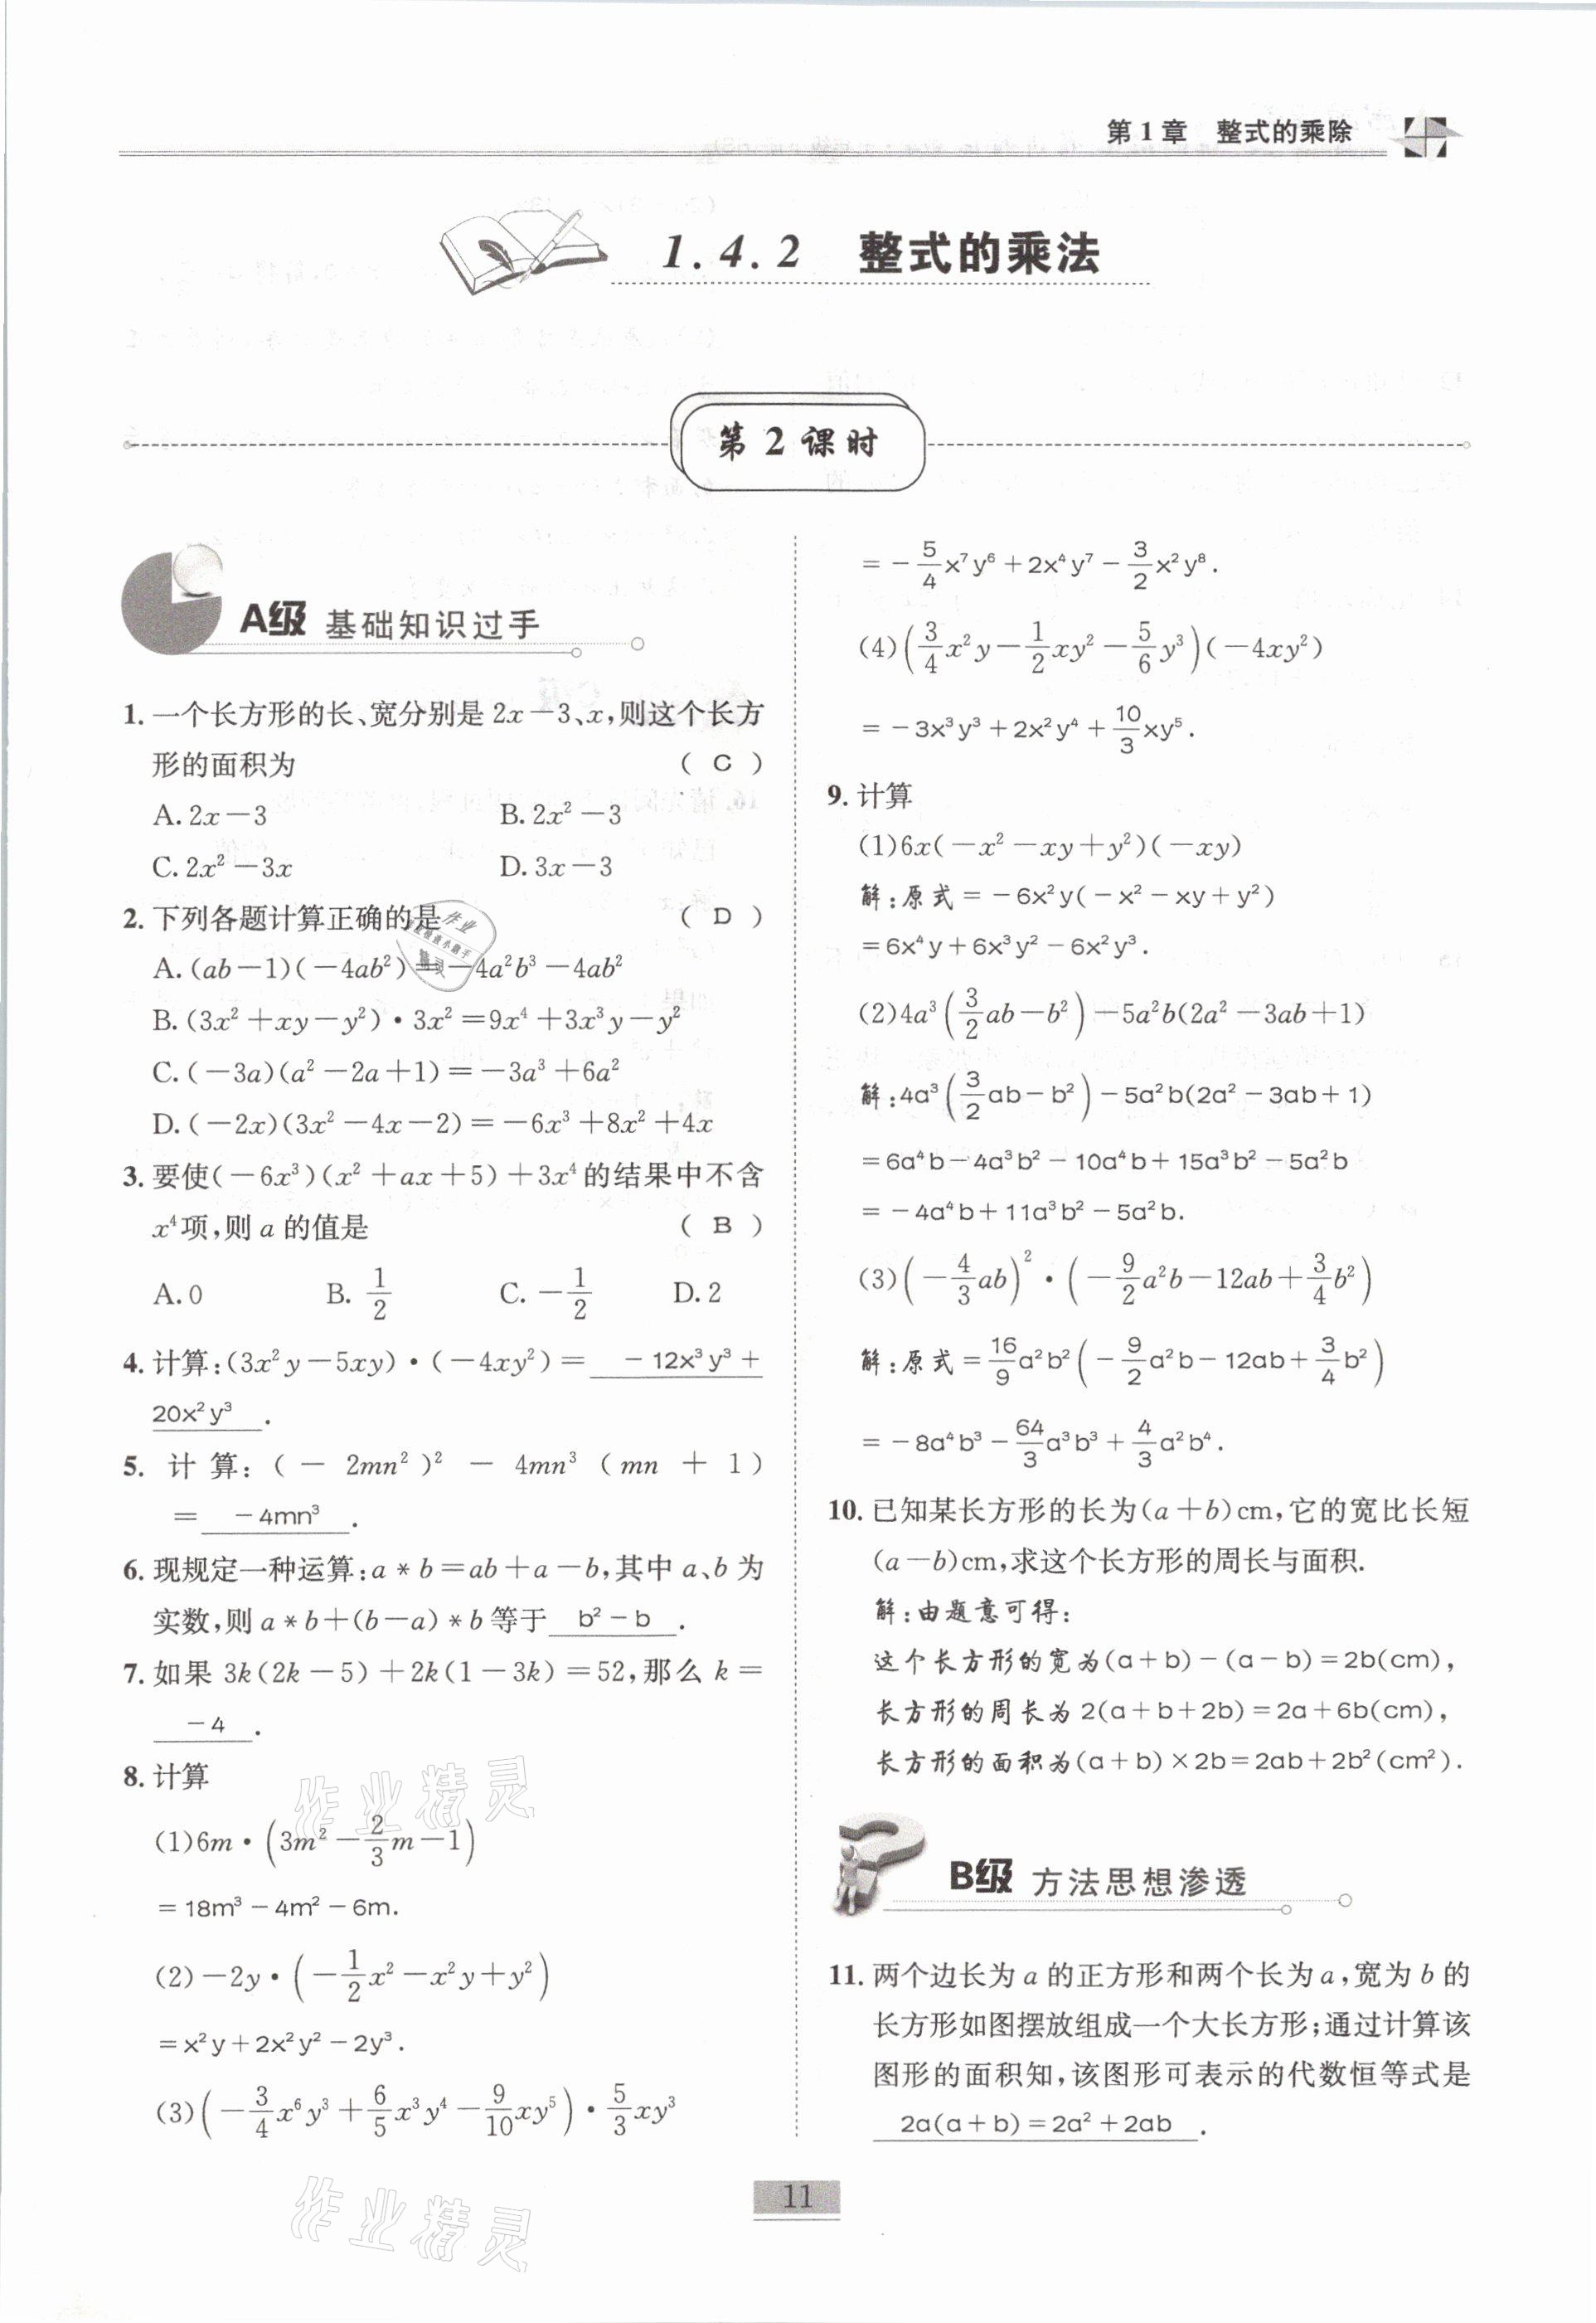 第1章 整式的乘除
1.4.2 整式的乘法
第2课时
A级 基础知识过手
1. 一个长方形的长、宽分别是 2x－3、x,则这个长方
形的面积为 ( C )
A. 2x－3 B. 2x²－3
C. 2x²－3x D. 3x－3
2. 下列各题计算正确的是 ( D )
A. (ab－1)(－4ab²)＝－4a²b³－4ab²
B. (3x²＋xy－y²)·3x²＝9x⁴＋3x³y－y²
C. (－3a)(a²－2a＋1)＝－3a³＋6a²
D. (－2x)(3x²－4x－2)＝－6x³＋8x²＋4x
3. 要使(－6x³)(x²＋ax＋5)＋3x⁴的结果中不含
x⁴项,则 a 的值是 ( B )
A. 0 B. 1/2 C. －1/2 D. 2
4. 计算:(3x²y－5xy)·(－4xy²)＝ －12x³y³＋
20x²y³ .
5. 计算:(－2mn²)²－4mn³(mn＋1)
＝ －4mn³ .
6. 现规定一种运算:a＊b＝ab＋a－b,其中 a、b 为
实数,则 a＊b＋(b－a)＊b 等于 b²－b .
7. 如果 3k(2k－5)＋2k(1－3k)＝52,那么 k＝
－4 .
8. 计算
(1)6m·(3m²－2/3m－1)
＝18m³－4m²－6m.
(2)－2y·(－1/2x²－x²y＋y²)
＝x²y＋2x²y²－2y³.
(3)(－3/4x⁶y³＋6/5x³y⁴－9/10xy⁵)·5/3xy³
＝－5/4x⁷y⁶＋2x⁴y⁷－3/2x²y⁸.
(4)(3/4x²y－1/2xy²－5/6y³)(－4xy²)
＝－3x³y³＋2x²y⁴＋10/3xy⁵.
9. 计算
(1)6x(－x²－xy＋y²)(－xy)
解:原式＝－6x²y(－x²－xy＋y²)
＝6x⁴y＋6x³y²－6x²y³.
(2)4a³(3/2ab－b²)－5a²b(2a²－3ab＋1)
解:4a³(3/2ab－b²)－5a²b(2a²－3ab＋1)
＝6a⁴b－4a³b²－10a⁴b＋15a³b²－5a²b
＝－4a⁴b＋11a³b²－5a²b.
(3)(－4/3ab)²·(－9/2a²b－12ab＋3/4b²)
解:原式＝16/9a²b²(－9/2a²b－12ab＋3/4b²)
＝－8a⁴b³－64/3a³b³＋4/3a²b⁴.
10. 已知某长方形的长为(a＋b)cm,它的宽比长短
(a－b)cm,求这个长方形的周长与面积.
解:由题意可得:
这个长方形的宽为(a＋b)－(a－b)＝2b(cm),
长方形的周长为2(a＋b＋2b)＝2a＋6b(cm),
长方形的面积为(a＋b)×2b＝2ab＋2b²(cm²).
B级 方法思想渗透
11. 两个边长为 a 的正方形和两个长为 a,宽为 b 的
长方形如图摆放组成一个大长方形;通过计算该
图形的面积知,该图形可表示的代数恒等式是
2a(a＋b)＝2a²＋2ab .
11
作业精灵
作业精灵